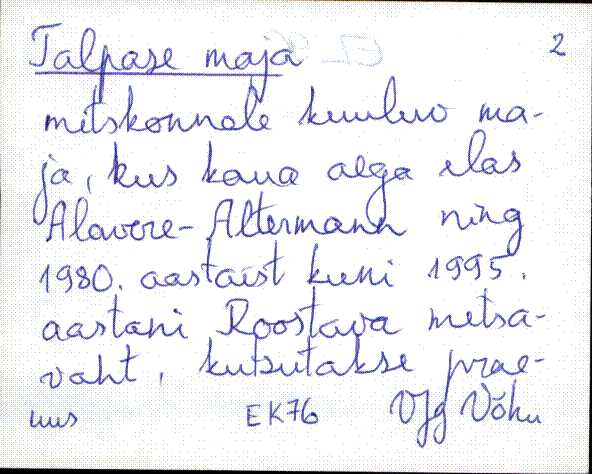 Talpase maja 2
metskonnale kuuluv ma-
ja, kus kaua aega elas
Alavere-Altermann ning
1980. aastaist kuni 1995.
aastani Roostava metsa-
vaht, kutsutakse prae-
uus EK76 VJg Võhu